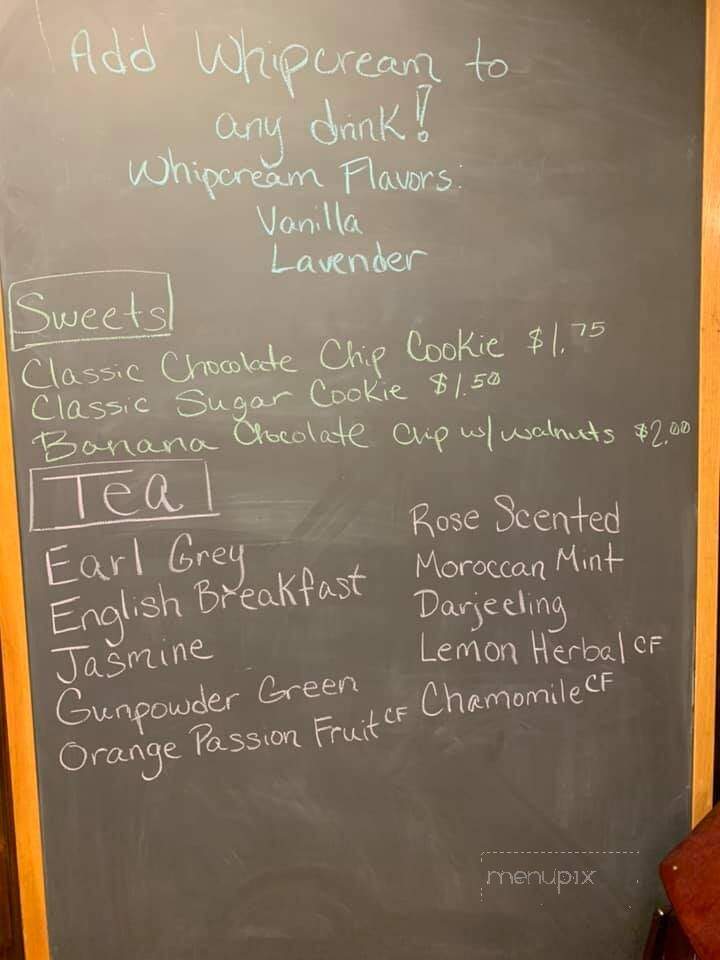 Add Whipcream to
any drink!
Whipcream Flavors:
Vanilla
Lavender
Sweets
Classic Chocolate Chip Cookie $1.75
Classic Sugar Cookie $1.50
Banana Chocolate Chip w/ walnuts $2.00
Tea
Earl Grey
English Breakfast
Jasmine
Gunpowder Green
Orange Passion Fruit CF
Rose Scented
Moroccan Mint
Darjeeling
Lemon Herbal CF
Chamomile CF
menupix